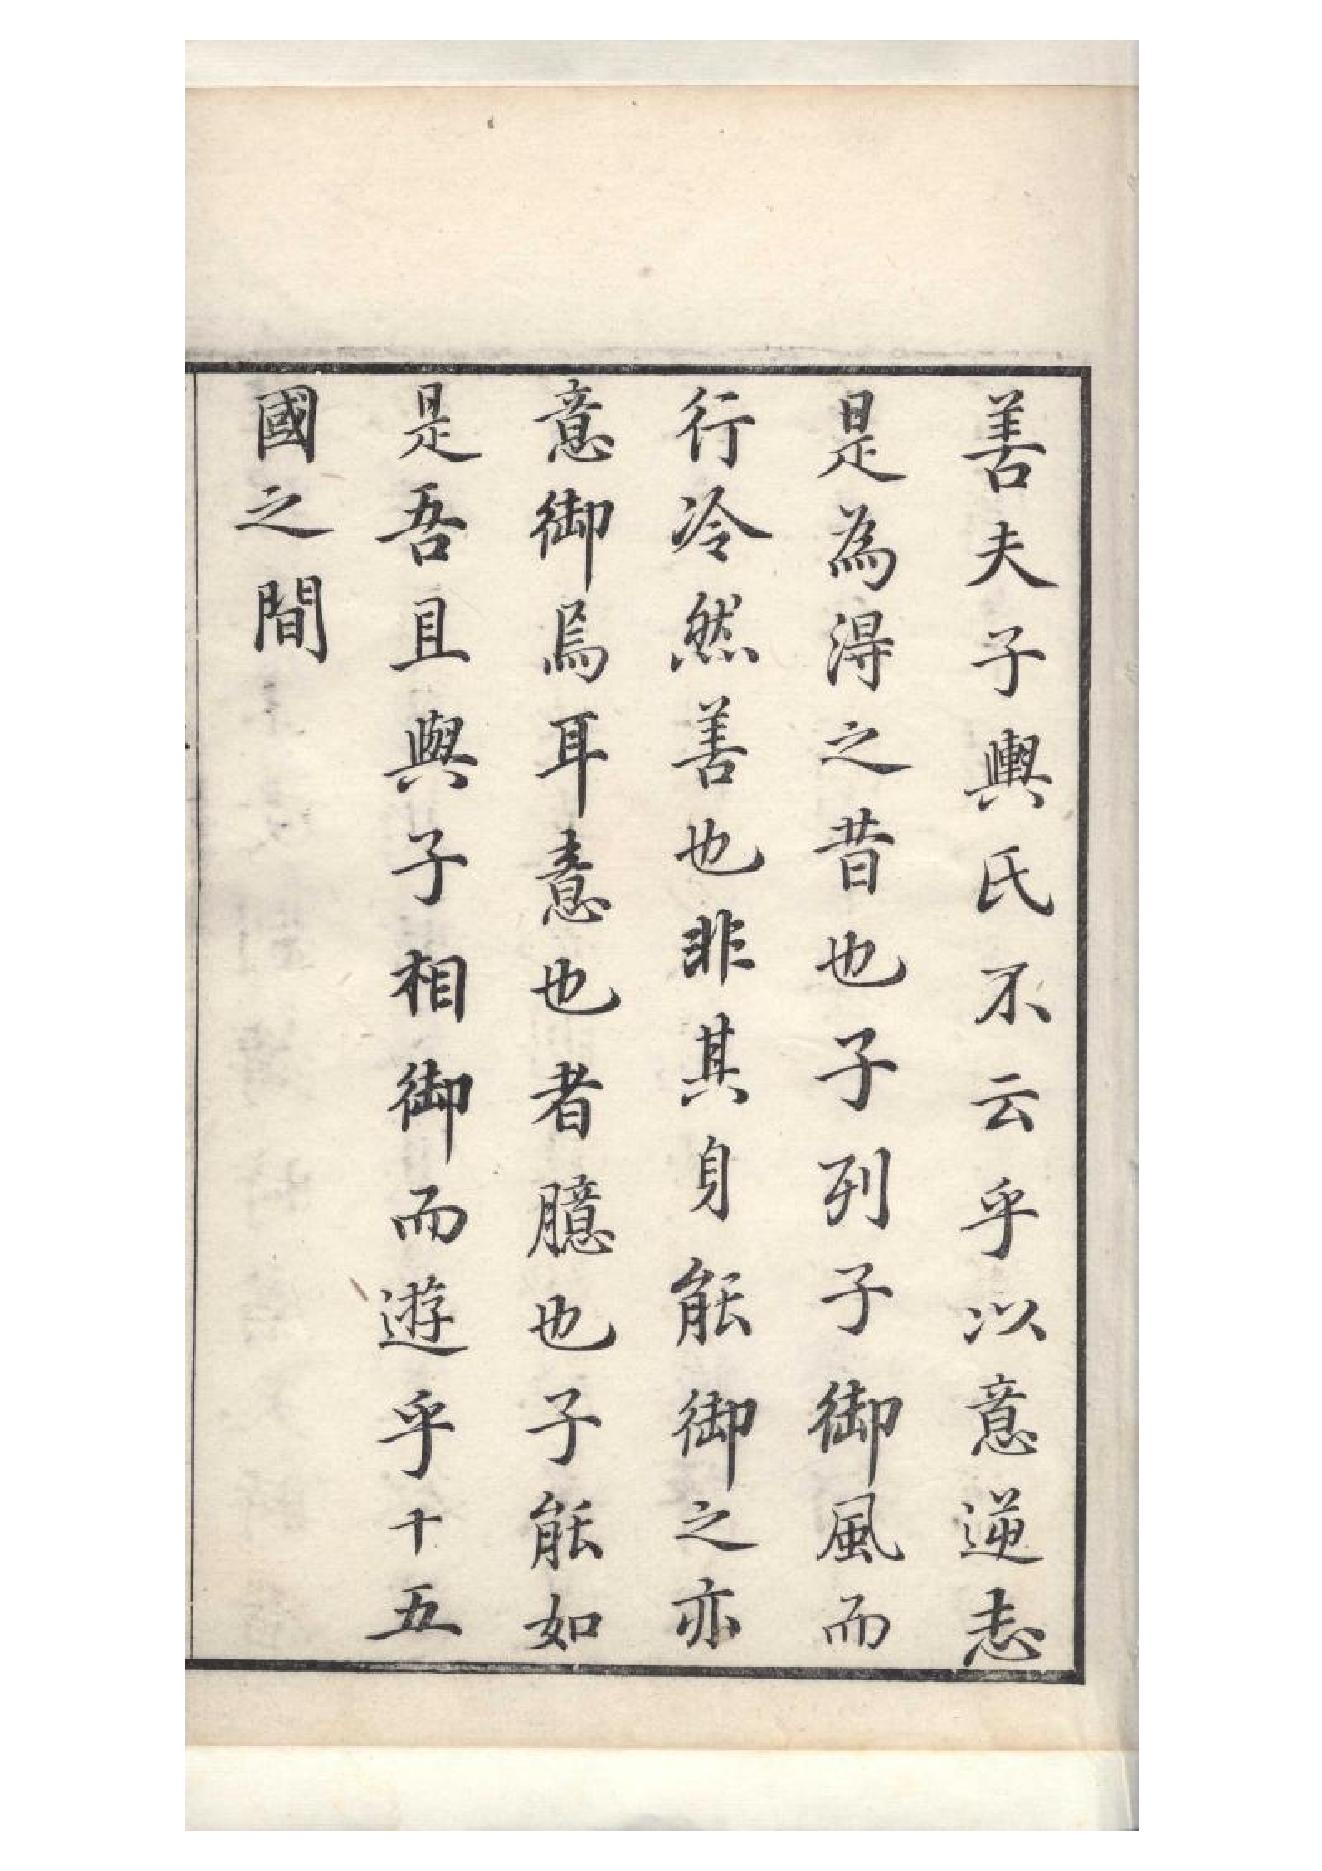 善夫子輿氏不云乎以意逆志
是為得之昔也子列子御風而
行冷然善也非其身能御之亦
意御焉耳意也者臆也子能如
是吾且與子相御而遊乎十五
國之間